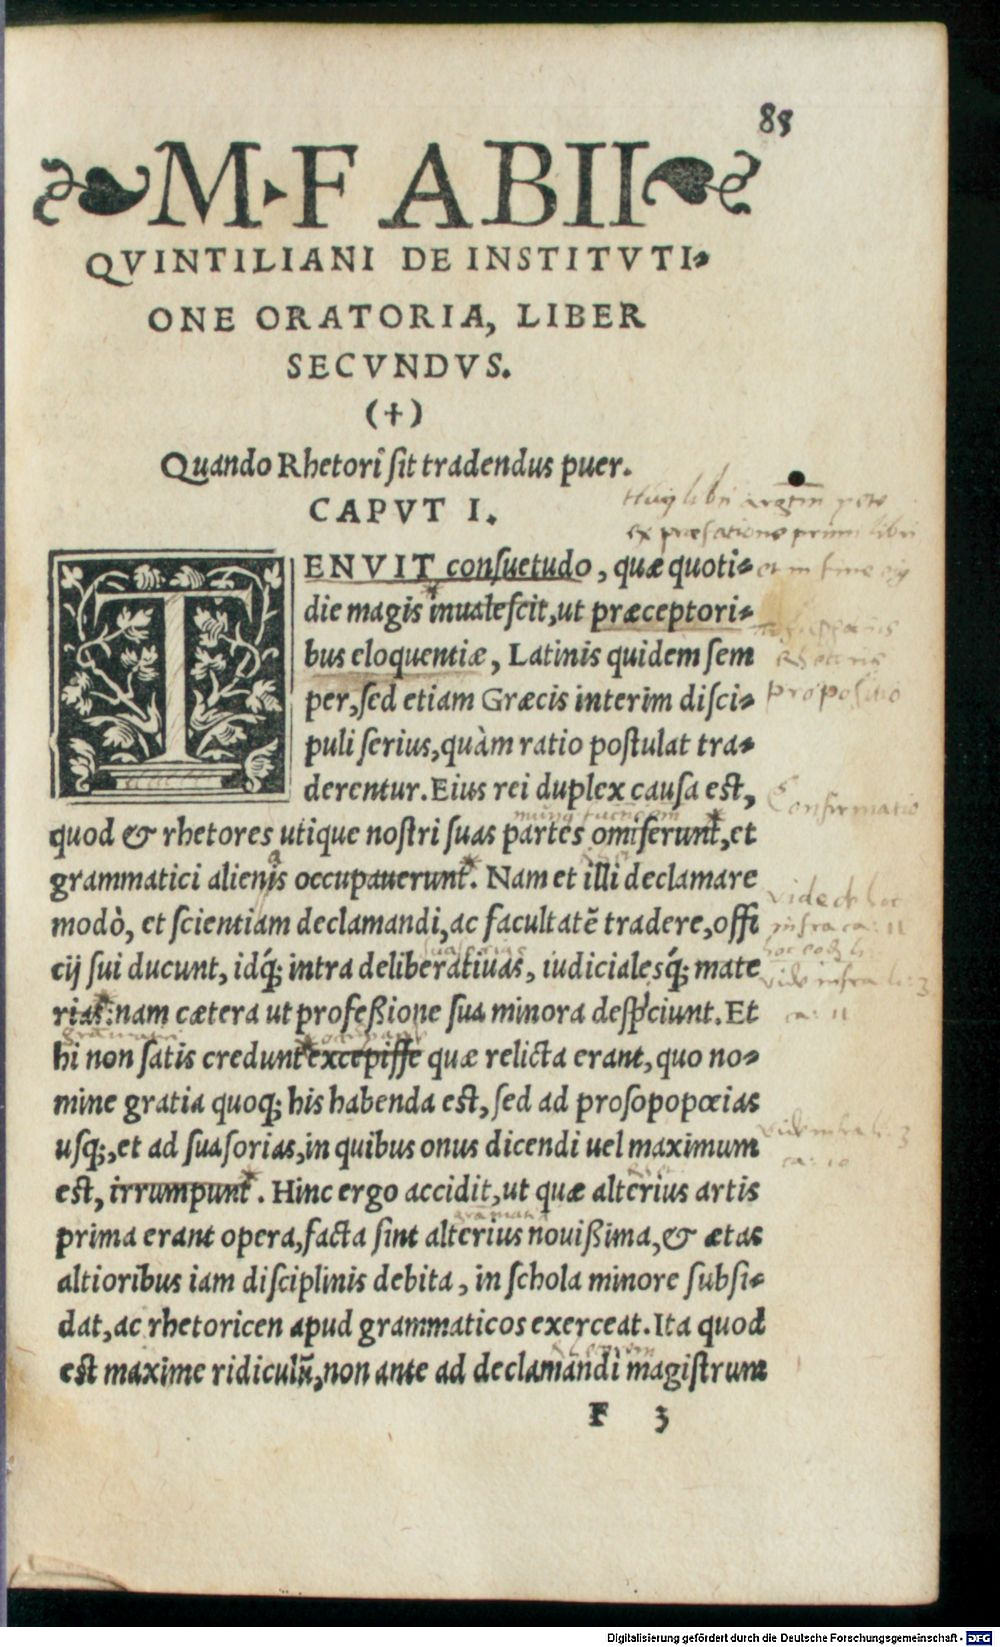 85
M. FABII
QVINTILIANI DE INSTITVTI-
ONE ORATORIA, LIBER
SECVNDVS.
(†)
Quando Rhetori sit tradendus puer.
CAPVT I.
libri
ex præfatione primi libri
TENVIT consuetudo, quæ quoti-
et in fine
die magis inualescit, ut præceptori-
bus eloquentiæ, Latinis quidem sem
per, sed etiam Græcis interim disci-
propositio
puli serius, quàm ratio postulat tra-
derentur. Eius rei duplex causa est,
Confirmatio
quod & rhetores utique nostri suas partes omiserunt, et
grammatici alienis occupauerunt. Nam et illi declamare
modò, et scientiam declamandi, ac facultatẽ tradere, offi
vide de hoc
infra ca: 11
suasorias
cij sui ducunt, idq́; intra deliberatiuas, iudicialesq́; mate
vide infra li: 3
rias: nam cætera ut professione sua minora despiciunt. Et
ca: 11
hi non satis credunt excepisse quæ relicta erant, quo no-
mine gratia quoq; his habenda est, sed ad prosopopœias
usq;, et ad suasorias, in quibus onus dicendi uel maximum
vide infra li: 3
ca: 10
est, irrumpunt. Hinc ergo accidit, ut quæ alterius artis
prima erant opera, facta sint alterius nouissima, & ætas
altioribus iam disciplinis debita, in schola minore subsi-
dat, ac rhetoricen apud grammaticos exerceat. Ita quod
est maxime ridiculũ, non ante ad declamandi magistrum
F 3
Digitalisierung gefördert durch die Deutsche Forschungsgemeinschaft - DFG